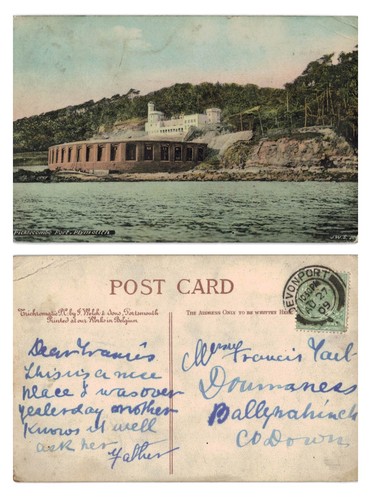 Picklecombe Fort, Plymouth
J.W.S.
POST CARD
Trichromatic P.C. by J. Welch & Sons, Portsmouth
Printed at our Works in Belgium
THE ADDRESS ONLY TO BE WRITTEN HERE
DEVONPORT
27
09
Dear Francis
This is a nice
place & I was over
yesterday mother
knows it well
ask her
Father
Francis Tait
Ballynahinch
Co Down